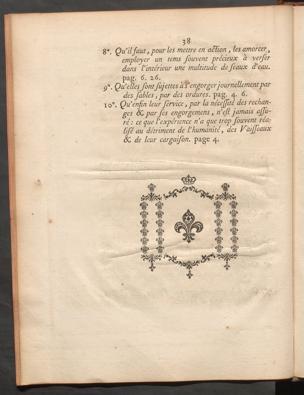 38
8°. Qu'il faut, pour les mettre en action, les amorcer,
employer un tems souvent précieux à verser
dans l'intérieur une multitude de seaux d'eau.
pag. 6. 26.
9°. Qu'elles sont sujettes à s'engorger journellement par
des sables, par des ordures. pag. 4. 6.
10°. Qu'enfin leur service, par la nécessité des rechan-
ges & par ses engorgemens, n'est jamais assu-
ré: ce que l'expérience n'a que trop souvent réa-
lisé au détriment de l'humanité, des Vaisseaux
& de leur cargaison. page 4.